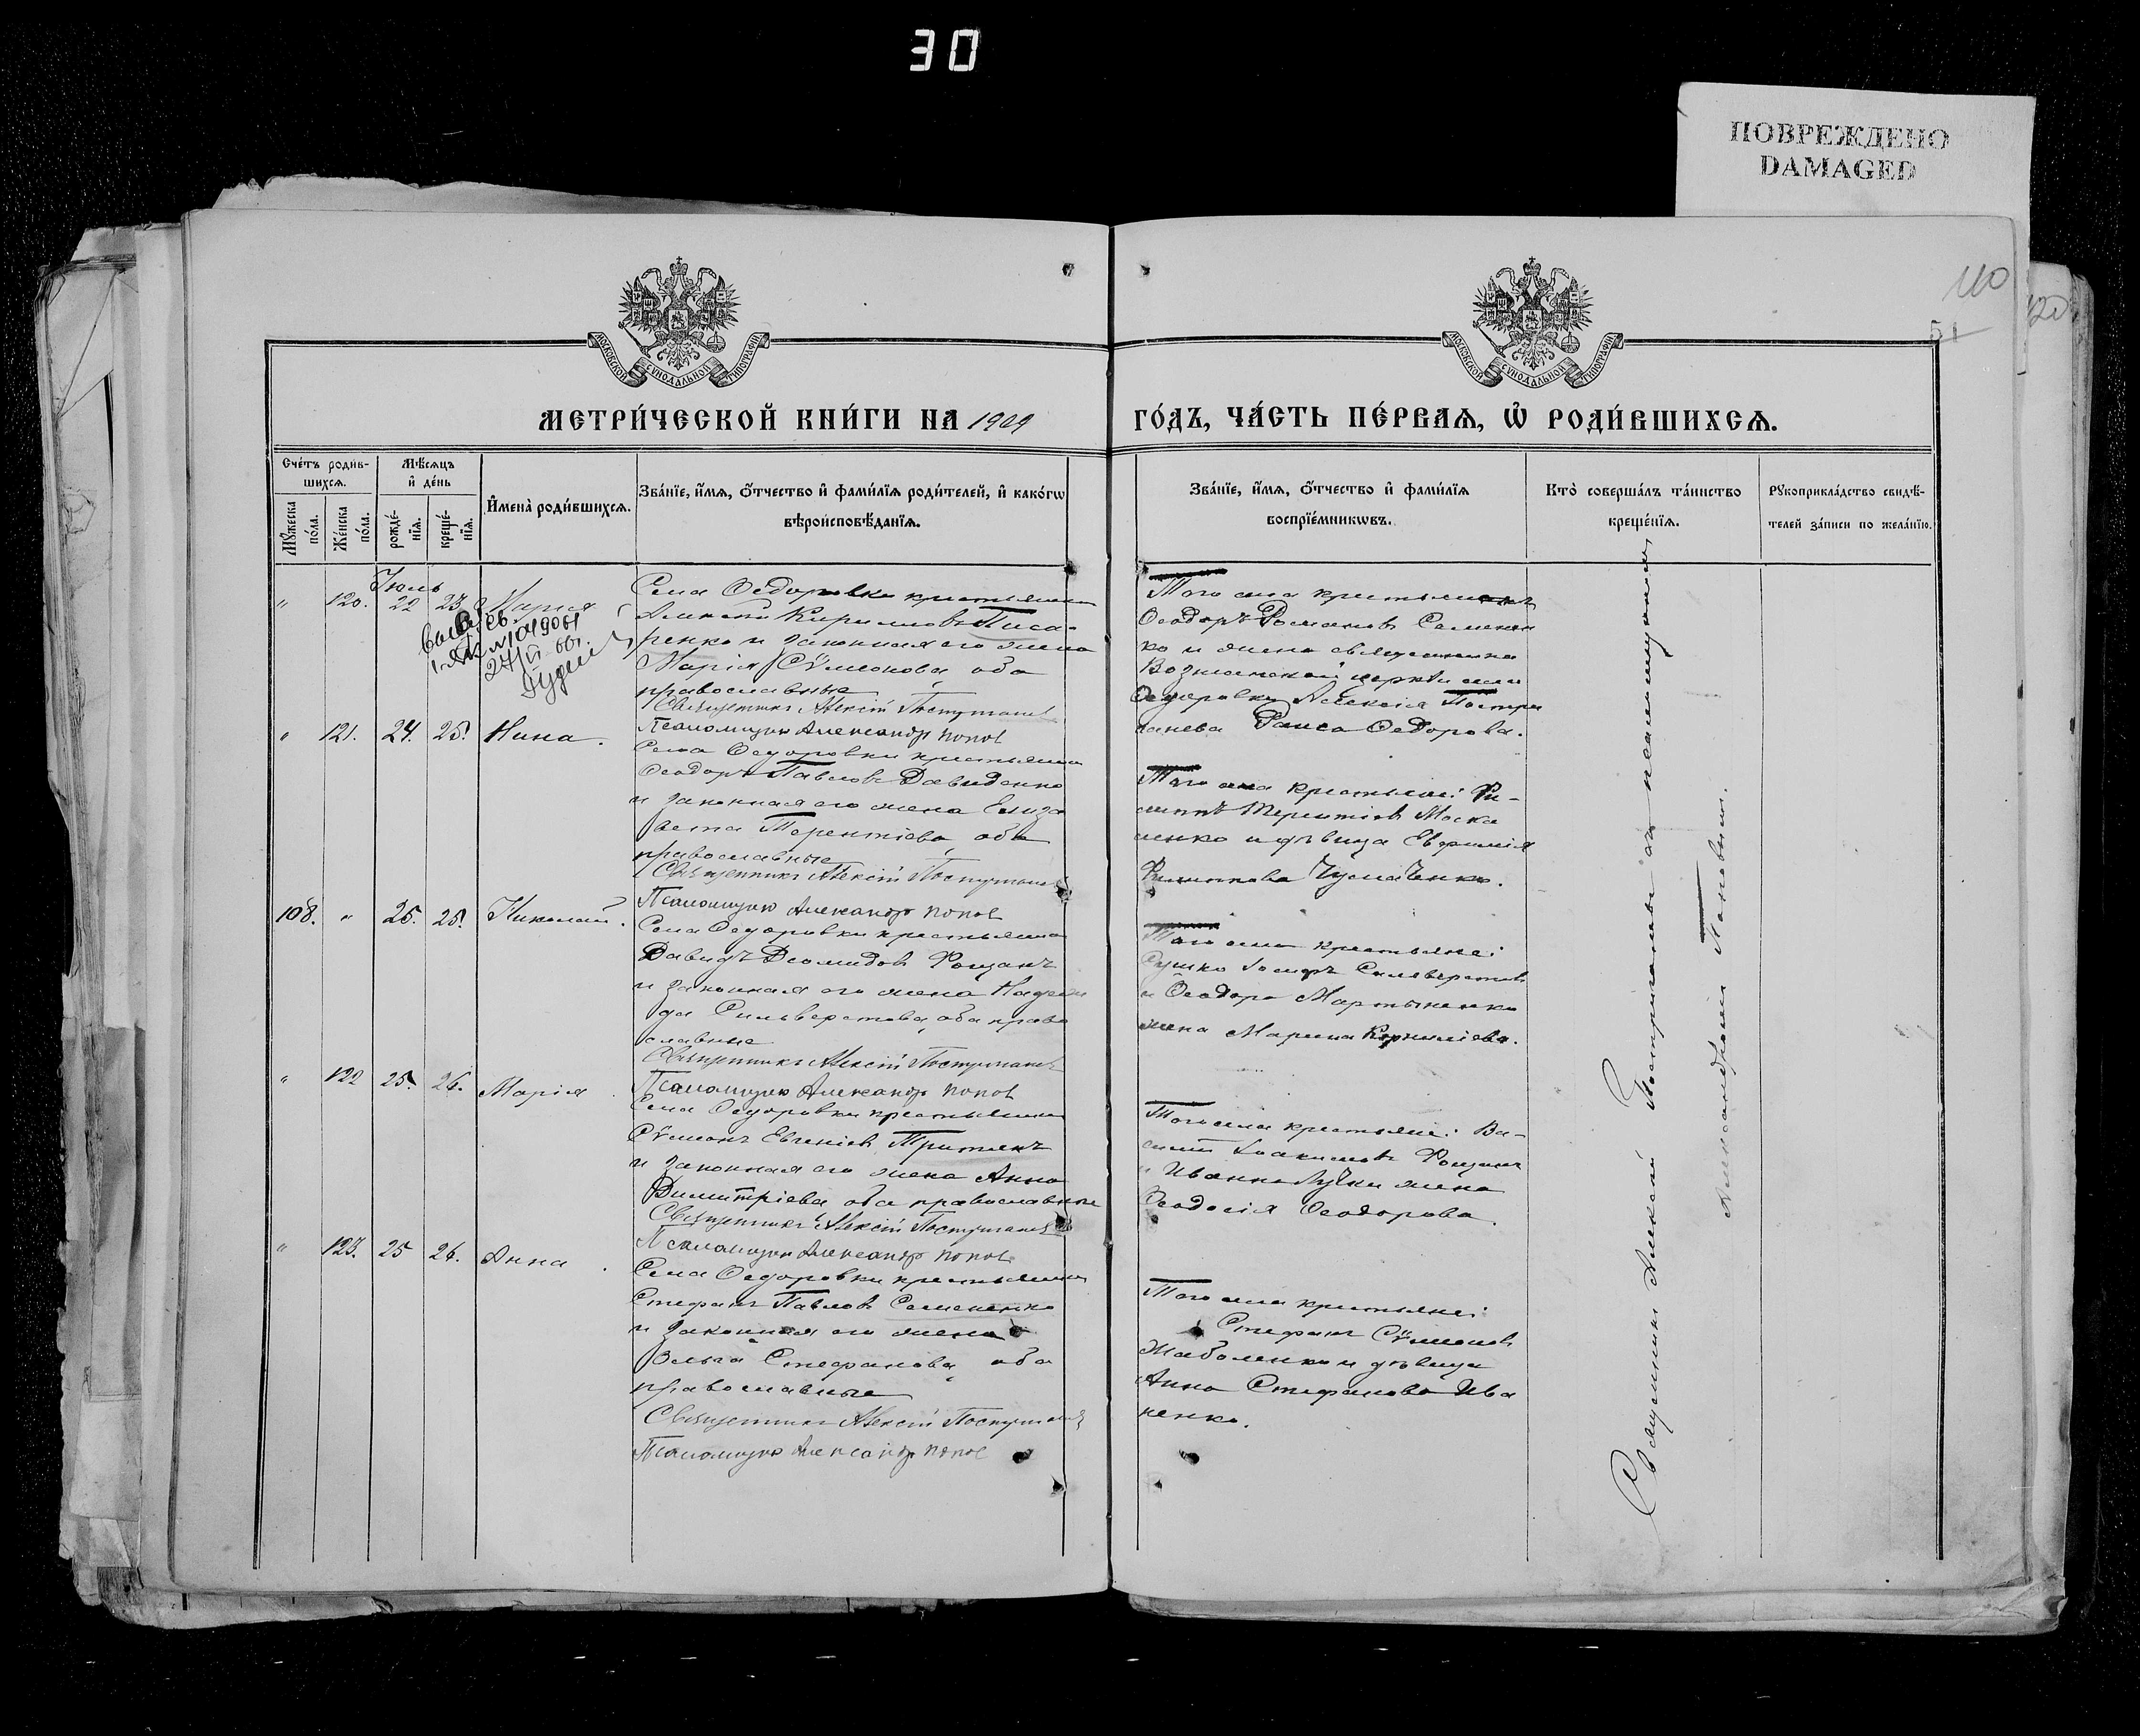 30
ПОВРЕЖДЕНО
DAMAGED
110
120
51
МОСКОВСКОЙ СУНОДАЛЬНОЙ ТИПОГРАФІИ
МОСКОВСКОЙ СУНОДАЛЬНОЙ ТИПОГРАФІИ
МЕТРИ́ЧЕСКОЙ КНИ́ГИ НА 1909
ГО́ДЪ, ЧА́СТЬ ПЕ́РВАѦ, Ѡ҆ РОДИ́ВШИХСѦ.
Сче́тъ роди́в-
шихсѧ.
Мꙋ́жеска
по́ла.
Же́нска
по́ла.
Мѣ́сѧцъ
и҆ де́нь
рожде́-
нїѧ.
креще́-
нїѧ.
И҆мена̀ роди́вшихсѧ.
Зва́нїе, и҆́мѧ, ѻ҆́тчество и҆ фами́лїѧ роди́телей, и҆ како́гѡ
вѣроисповѣ́данїѧ.
Зва́нїе, и҆́мѧ, ѻ҆́тчество и҆ фами́лїѧ
воспрїе́мникѡвъ.
Кто̀ соверша́лъ та́инство
креще́нїѧ.
Рꙋкоприкла́дство свидѣ́-
телей за́писи по жела́нїю.
Іюль
" 120. 22 23 Марія
24/VI 60г.
Села Ѳедоровки крестьянинъ
Алексѣй Кирилловъ Писа-
ренко и законная его жена
Марія Сѵмеонова, оба
православные
Священникъ Алексій
Псаломщикъ Александръ Попов
Того села крестьянинъ
Ѳеодоръ Романовъ Семенен
ко и жена священника
Вознесенской церкви села
Ѳедоровки Алексія
Раиса Ѳедорова.
" 121. 24. 25. Нина.
Села Ѳедоровки крестьянинъ
Ѳеодоръ Павловъ Давиденко
и законная его жена Елиза
вета Терентіева, оба
православные
Священникъ Алексій
Псаломщикъ Александръ Попов
Того села крестьяне: Фи-
липпъ Терентіевъ Моска
ленко и дѣвица Евфимія
Филиппова Чумаченко.
108. " 25. 25. Николай.
Села Ѳедоровки крестьянинъ
Давидъ Діомидовъ Рощанъ
и законная его жена Надеж
да Сильверстова, оба право
славные
Священникъ Алексій
Псаломщикъ Александръ Попов
Того села крестьяне:
Сушко Іосифъ Сильверстовъ
и Ѳеодора Мартыненко
жена Марина Корниліева.
" 122 25. 26. Марія.
Села Ѳедоровки крестьянинъ
Сѵмеонъ Евгеніевъ
и законная его жена Анна
Димитріева оба православные
Священникъ Алексій
Псаломщикъ Александръ Попов
Того села крестьяне: Ва-
силій Іоакимовъ Рощанъ
и Ивана жена
Ѳеодосія Ѳеодорова.
" 123. 25 26. Анна.
Села Ѳедоровки крестьянинъ
Стефанъ Павловъ Семененко
и законная его жена
Ольга Стефанова, оба
православные
Священникъ Алексій
Псаломщикъ Александръ Попов
Того села крестьяне:
Стефанъ Сѵмеоновъ
и дѣвица
Анна Стефанова Ива
ненко.
Священникъ Алексій съ псаломщикомъ
Александромъ Поповымъ.